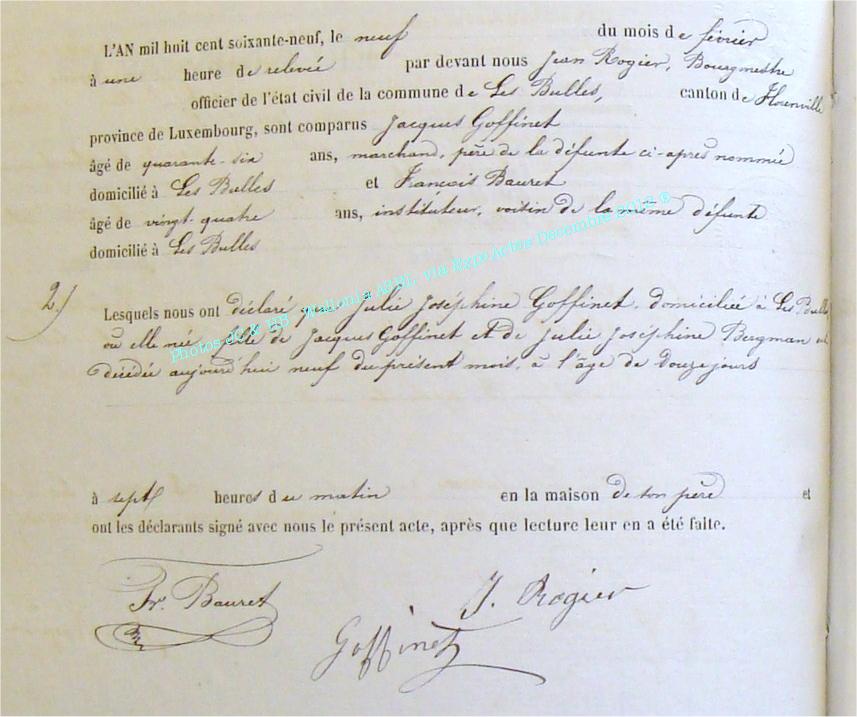 L'AN mil huit cent soixante-neuf, le neuf du mois de février
à une heure de relevée par devant nous Jean Rogier, Bourgmestre
officier de l'état civil de la commune de Les Bulles, canton de Florenville
province de Luxembourg, sont comparus Jacques Goffinet
âgé de quarante-six ans, marchand, père de la défunte ci-après nommée
domicilié à Les Bulles et François Bauret
âgé de vingt-quatre ans, instituteur, voisin de la même défunte
domicilié à Les Bulles
2.) Lesquels nous ont déclaré que Julie Joséphine Goffinet, domiciliée à Les Bulles
où elle née, fille de Jacques Goffinet et de Julie Joséphine Bergman est
décédée aujourd'hui neuf du présent mois, à l'âge de Douze jours
à sept heures du matin en la maison de son père et
ont les déclarants signé avec nous le présent acte, après que lecture leur en a été faite.
Fr. Bauret
J. Rogier
Goffinet